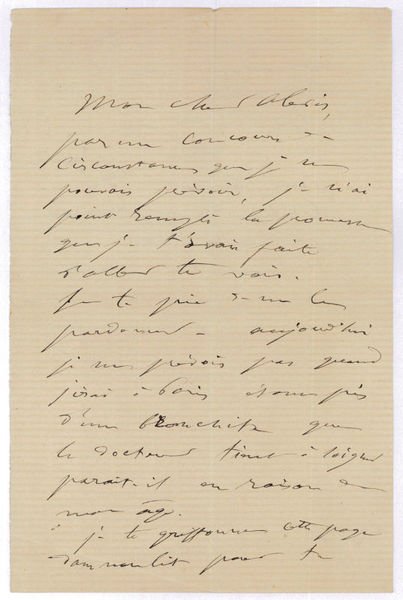 Mon cher Alexis,
par un concours de
circonstances que je ne
pouvais prévoir, je n'ai
point rempli la promesse
que je t'avais faite
d'aller te voir.
Je te prie de me le
pardonner. aujourd'hui
je ne prévois pas quand
j'irai à Paris étant pris
d'une bronchite que
le docteur tient à soigner
parait-il en raison de
mon âge.
je te griffonne cette page
dans mon lit pour te